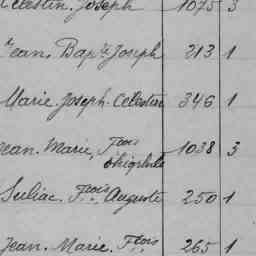 Célestin, Joseph 1075 3
Jean, Bapte Joseph 213 1
Marie Joseph Célestin 346 1
Jean, Marie, Fçois Théophile 1038 3
Suliac, Fçois Auguste 250 1
Jean, Marie, Fçois 265 1